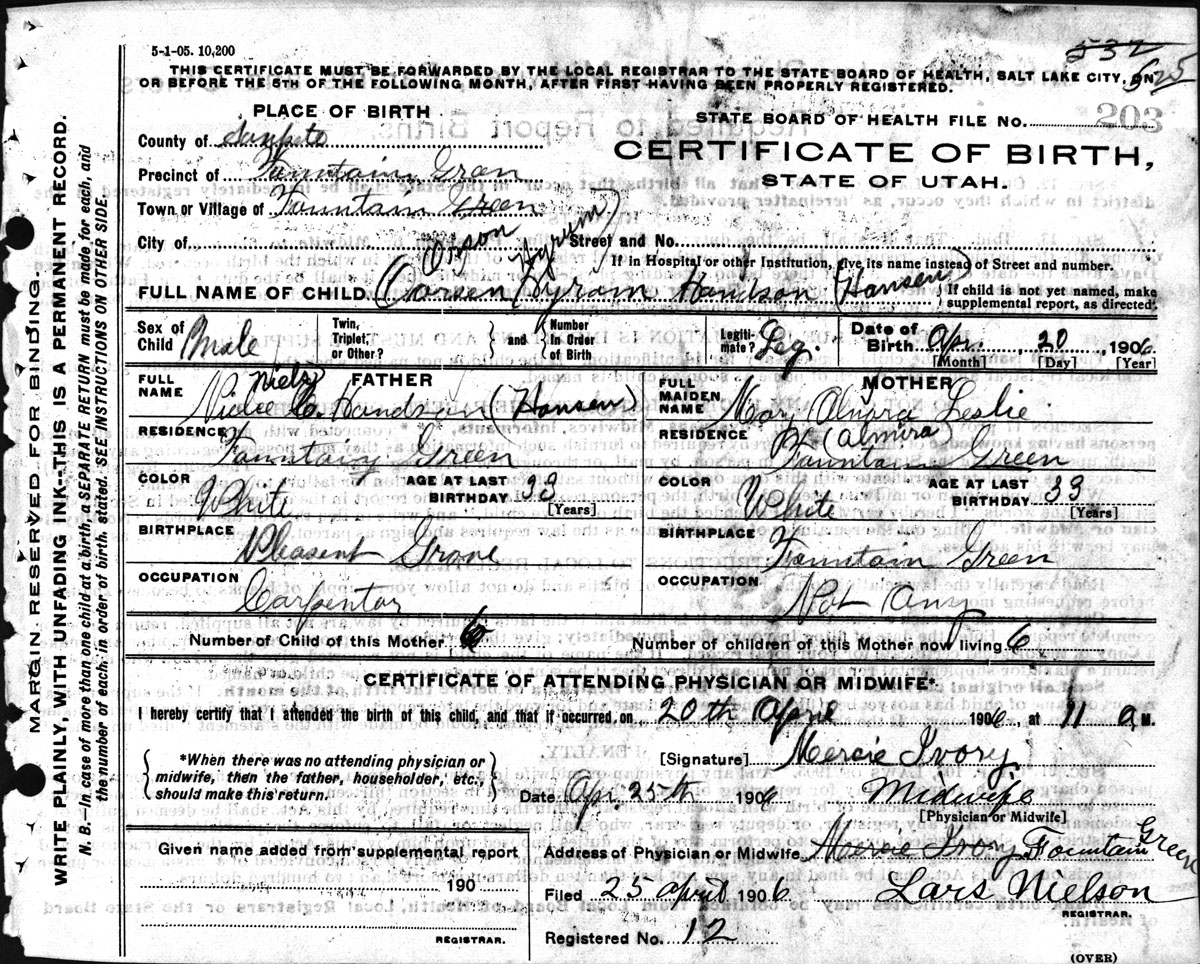 5-1-05. 10,200
532
525
THIS CERTIFICATE MUST BE FORWARDED BY THE LOCAL REGISTRAR TO THE STATE BOARD OF HEALTH, SALT LAKE CITY, ON
OR BEFORE THE 5TH OF THE FOLLOWING MONTH, AFTER FIRST HAVING BEEN PROPERLY REGISTERED.
PLACE OF BIRTH
STATE BOARD OF HEALTH FILE NO. 203
County of Sanpete
CERTIFICATE OF BIRTH,
Precinct of Fountain Gren
STATE OF UTAH.
Town or Village of Fountain Green
City of Street and No.
If in Hospital or other Institution, give its name instead of Street and number.
(Orson Hyrum)
FULL NAME OF CHILD Orsen Hyrom Handson (Hansen)
If child is not yet named, make supplemental report, as directed.
Sex of Child Male
Twin, Triplet, or Other? and Number In Order of Birth
Legitimate? Leg.
Date of Birth Apr. 20, 1906
[Month] [Day] [Year]
FATHER
FULL NAME Nielse C. Handsen (Hansen)
Niels
RESIDENCE Fountain Green
COLOR White AGE AT LAST BIRTHDAY 33
[Years]
BIRTHPLACE Pleasent Grove
OCCUPATION Carpentar
MOTHER
FULL MAIDEN NAME Mary Almara Leslie
(Almira)
RESIDENCE Fountain Green
COLOR White AGE AT LAST BIRTHDAY 33
[Years]
BIRTHPLACE Fountain Green
OCCUPATION Not Any
Number of Child of this Mother 6 Number of children of this Mother now living 6
CERTIFICATE OF ATTENDING PHYSICIAN OR MIDWIFE*.
I hereby certify that I attended the birth of this child, and that it occurred on 20th April 1906, at 11 a M.
*When there was no attending physician or midwife, then the father, householder, etc., should make this return.
[Signature] Mercie Ivory
Date Apr. 25th 1906 Midwife
[Physician or Midwife]
Given name added from supplemental report
190
REGISTRAR.
Address of Physician or Midwife Mercie Ivory Fountain Green
Filed 25 april 1906 Lars Nielson
REGISTRAR.
Registered No. 12
(OVER)
MARGIN RESERVED FOR BINDING.
WRITE PLAINLY, WITH UNFADING INK--THIS IS A PERMANENT RECORD.
N. B.--In case of more than one child at a birth, a SEPARATE RETURN must be made for each, and
the number of each, in order of birth, stated. SEE INSTRUCTIONS ON OTHER SIDE.